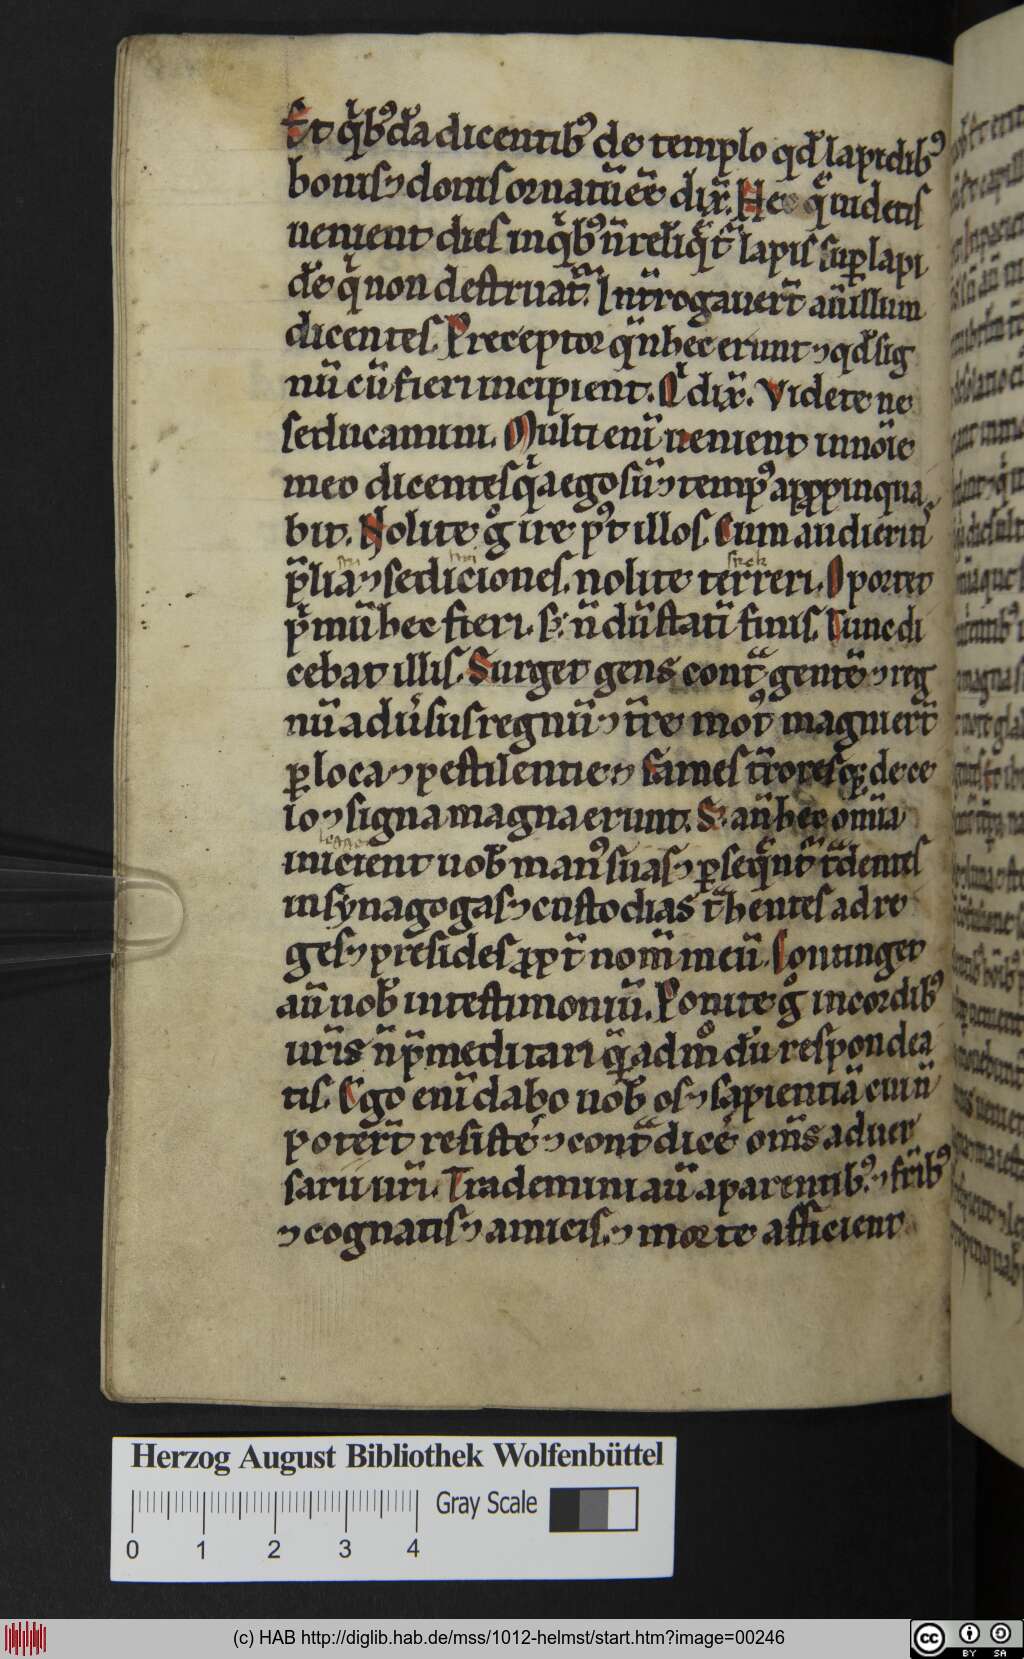 Et qͥbꝰdã dicentibꝰ de templo qđ lapidibꝰ
bonis ⁊ donis ornatũ eẽ dix̃. Hec q̃ uidetis
uenient dies in qͥbꝰ ñ relīq̃t̃ lapis sup̱ lapi
dẽ qͥ non destruat̃. Int̃rogauer̃t aũ illum
dicentes. Preceptor qñ hec erunt ⁊ qđ sig
nũ cũ fieri incipient. Qͥ dix̃. Videte ne
seducamini. Multi enĩ uenient in noĩe
meo dicentes qͥa ego sũ ⁊ tempꝰ app̱pinqua
bit. Nolite gͦ ire pꝰt illos. Cum audieritͥs
p̃lia ⁊ sediciones. nolite terreri. Oportet
pͥmũ hec fieri. sꝫ ñ dũ statĩ finis. Tunc di
cebat illis. Surget gens contͣ gentẽ ⁊ reg
nũ aduͥsus regnũ ⁊ t̃re motꝰ magni er̃t
p̱ loca ⁊ pestilentie ⁊ fames t̃roresqꝫ de ce
lo ⁊ signa magna erunt. Sꝫ añ hec om̃ia
inicient uob̃ manꝰ suas ⁊ p̱seq̃nt̃ tͣdentes
in synagogas ⁊ custodias tͣhentes ad re
ges ⁊ presides ꝓpt̃ nom̃ meũ. Continget
aũ uob̃ in testimoniũ. Ponite gͦ in cordibꝰ
ur̃is ñ p̃meditari q̃ admͦdũ respondea
tis. Ego enĩ dabo uob̃ os ⁊ sapientiã cui ñ
poter̃t resistẽ ⁊ contͣdicẽ om̃s aduer
sarii ur̃i. Trademini aũ a parentibꝰ. ⁊ fr̃ibꝰ
⁊ cognatis ⁊ amicis. ⁊ morte afficient
Herzog August Bibliothek Wolfenbüttel
Gray Scale
0 1 2 3 4
(c) HAB http://diglib.hab.de/mss/1012-helmst/start.htm?image=00246
cc BY SA